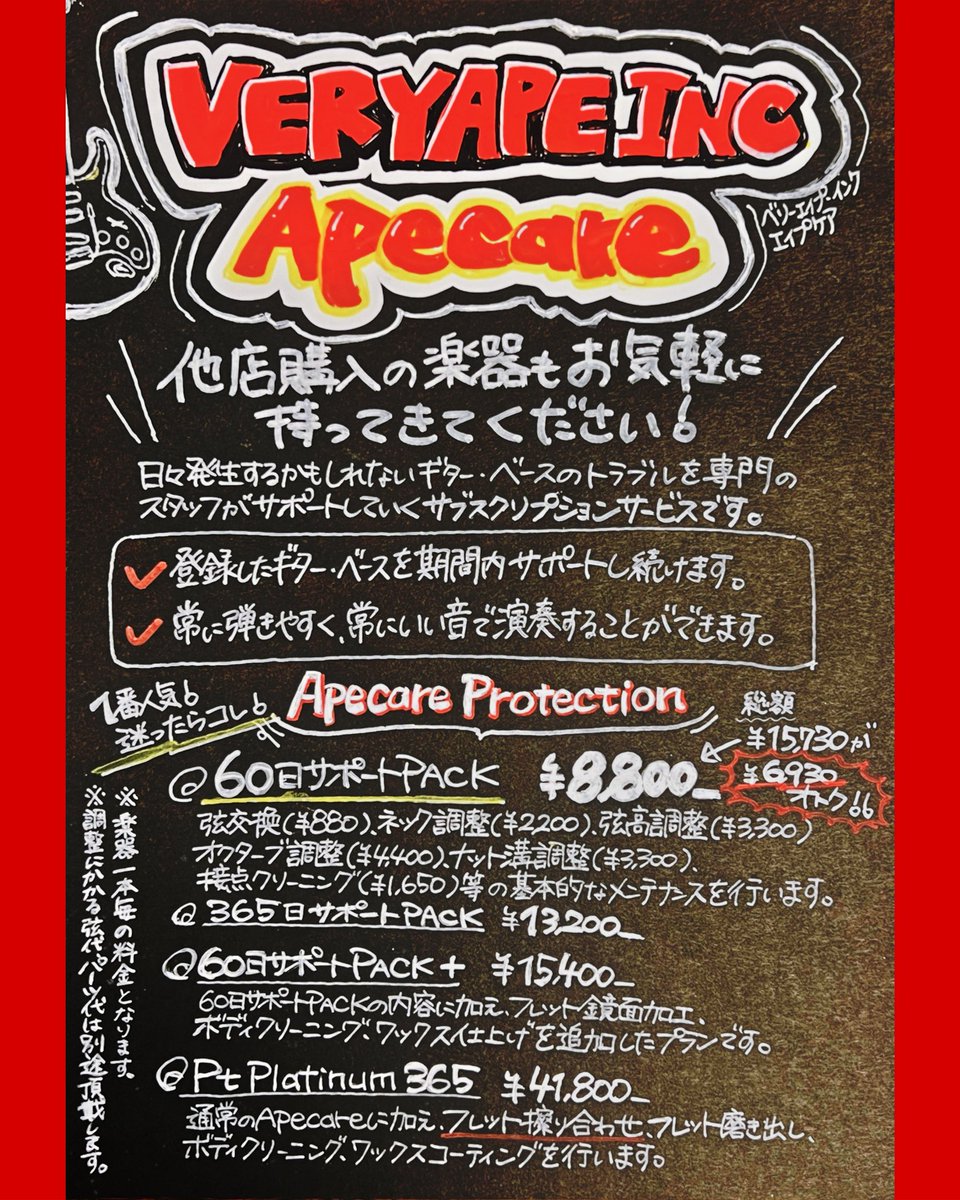 VERYAPE INC
Apecare
ベリーエイプインク
エイプケア
他店購入の楽器もお気軽に
持ってきてください!
日々発生するかもしれないギター・ベースのトラブルを専門の
スタッフがサポートしていくサブスクリプションサービスです。
登録したギター・ベースを期間内サポートし続けます。
常に弾きやすく、常にいい音で演奏することができます。
1番人気!
迷ったらコレ!
Apecare Protection
総額
¥15,730が
¥6,930
オトク!!
@60日サポートPACK ¥8,800_
弦交換(¥880)、ネック調整(¥2,200)、弦高調整(¥3,300)
オクターブ調整(¥4,400)、ナット溝調整(¥3,300)、
接点クリーニング(¥1,650)等の基本的なメンテナンスを行います。
@365日サポートPACK ¥13,200_
@60日サポートPACK+ ¥15,400_
60日サポートPACKの内容に加え、フレット鏡面加工、
ボディクリーニング、ワックス仕上げを追加したプランです。
@Pt Platinum 365 ¥41,800_
通常のApecareに加え、フレット擦り合わせ、フレット磨き出し、
ボディクリーニング、ワックスコーティングを行います。
※楽器一本毎の料金となります。
※調整にかかる弦代、パーツ代は別途頂戴します。